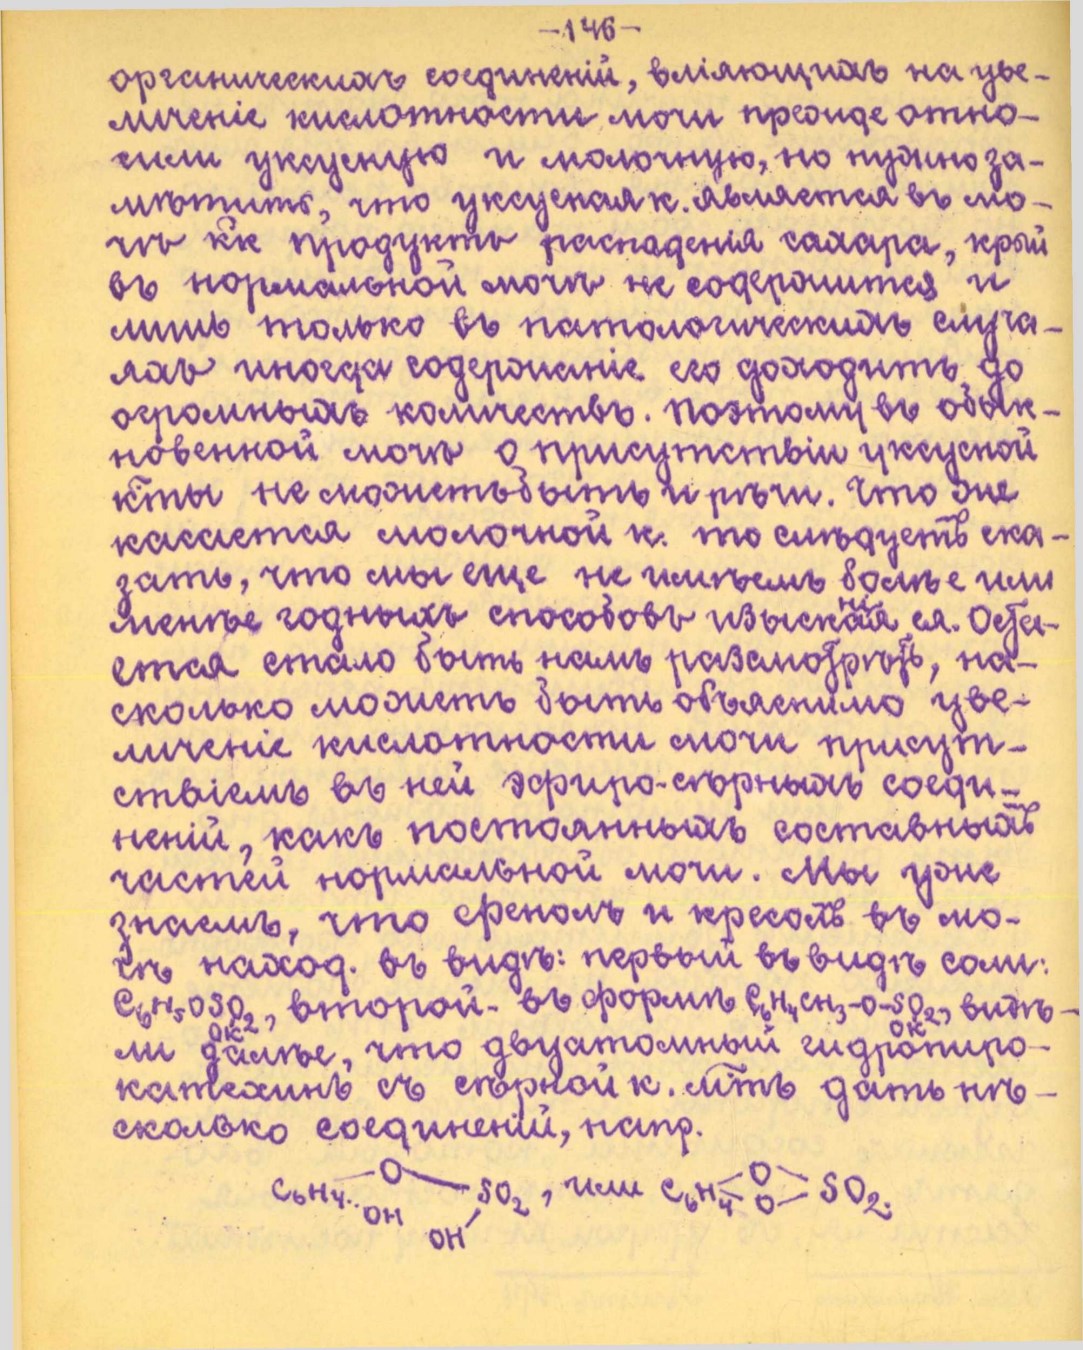 -146-
органическихъ соединеній, вліяющихъ на уве-
личеніе кислотности мочи прежде отно-
сили уксусную и молочную, но нужно за-
мѣтить, что уксусная к. является въ мо-
чѣ к̃к продуктъ распаденія сахара, крый
въ нормальной мочѣ не содержится и
лишь только въ патологическихъ случа-
яхъ иногда содержаніе его доходитъ до
огромныхъ количествъ. Поэтому въ обык-
новенной мочѣ о присутствіи уксусной
к̃ты не можетъ быть и рѣчи. Что же
касается молочной к. то слѣдуетъ ска-
зать, что мы еще не имѣемъ болѣе или
менѣе годныхъ способовъ изысканія ея. Оста-
ется стало быть намъ разсмотрѣть, на-
сколько можетъ быть объяснимо уве-
личеніе кислотности мочи присут-
ствіемъ въ ней эфиро-сѣрныхъ соеди-
неній, какъ постоянныхъ составныхъ
частей нормальной мочи. Мы уже
знаемъ, что фенолъ и крезолъ въ мо-
чѣ наход. въ видѣ: первый въ видѣ соли:
C₆H₅OSO₂, второй- въ формѣ C₆H₄CH₃-O-SO₂, видѣ-
OK OK
ли далѣе, что двуатомный гидропиро-
катехинъ съ сѣрной к. м̃тъ дать нѣ-
сколько соединеній, напр.
C₆H₄ O OH SO₂ OH, или C₆H₄ O O SO₂.